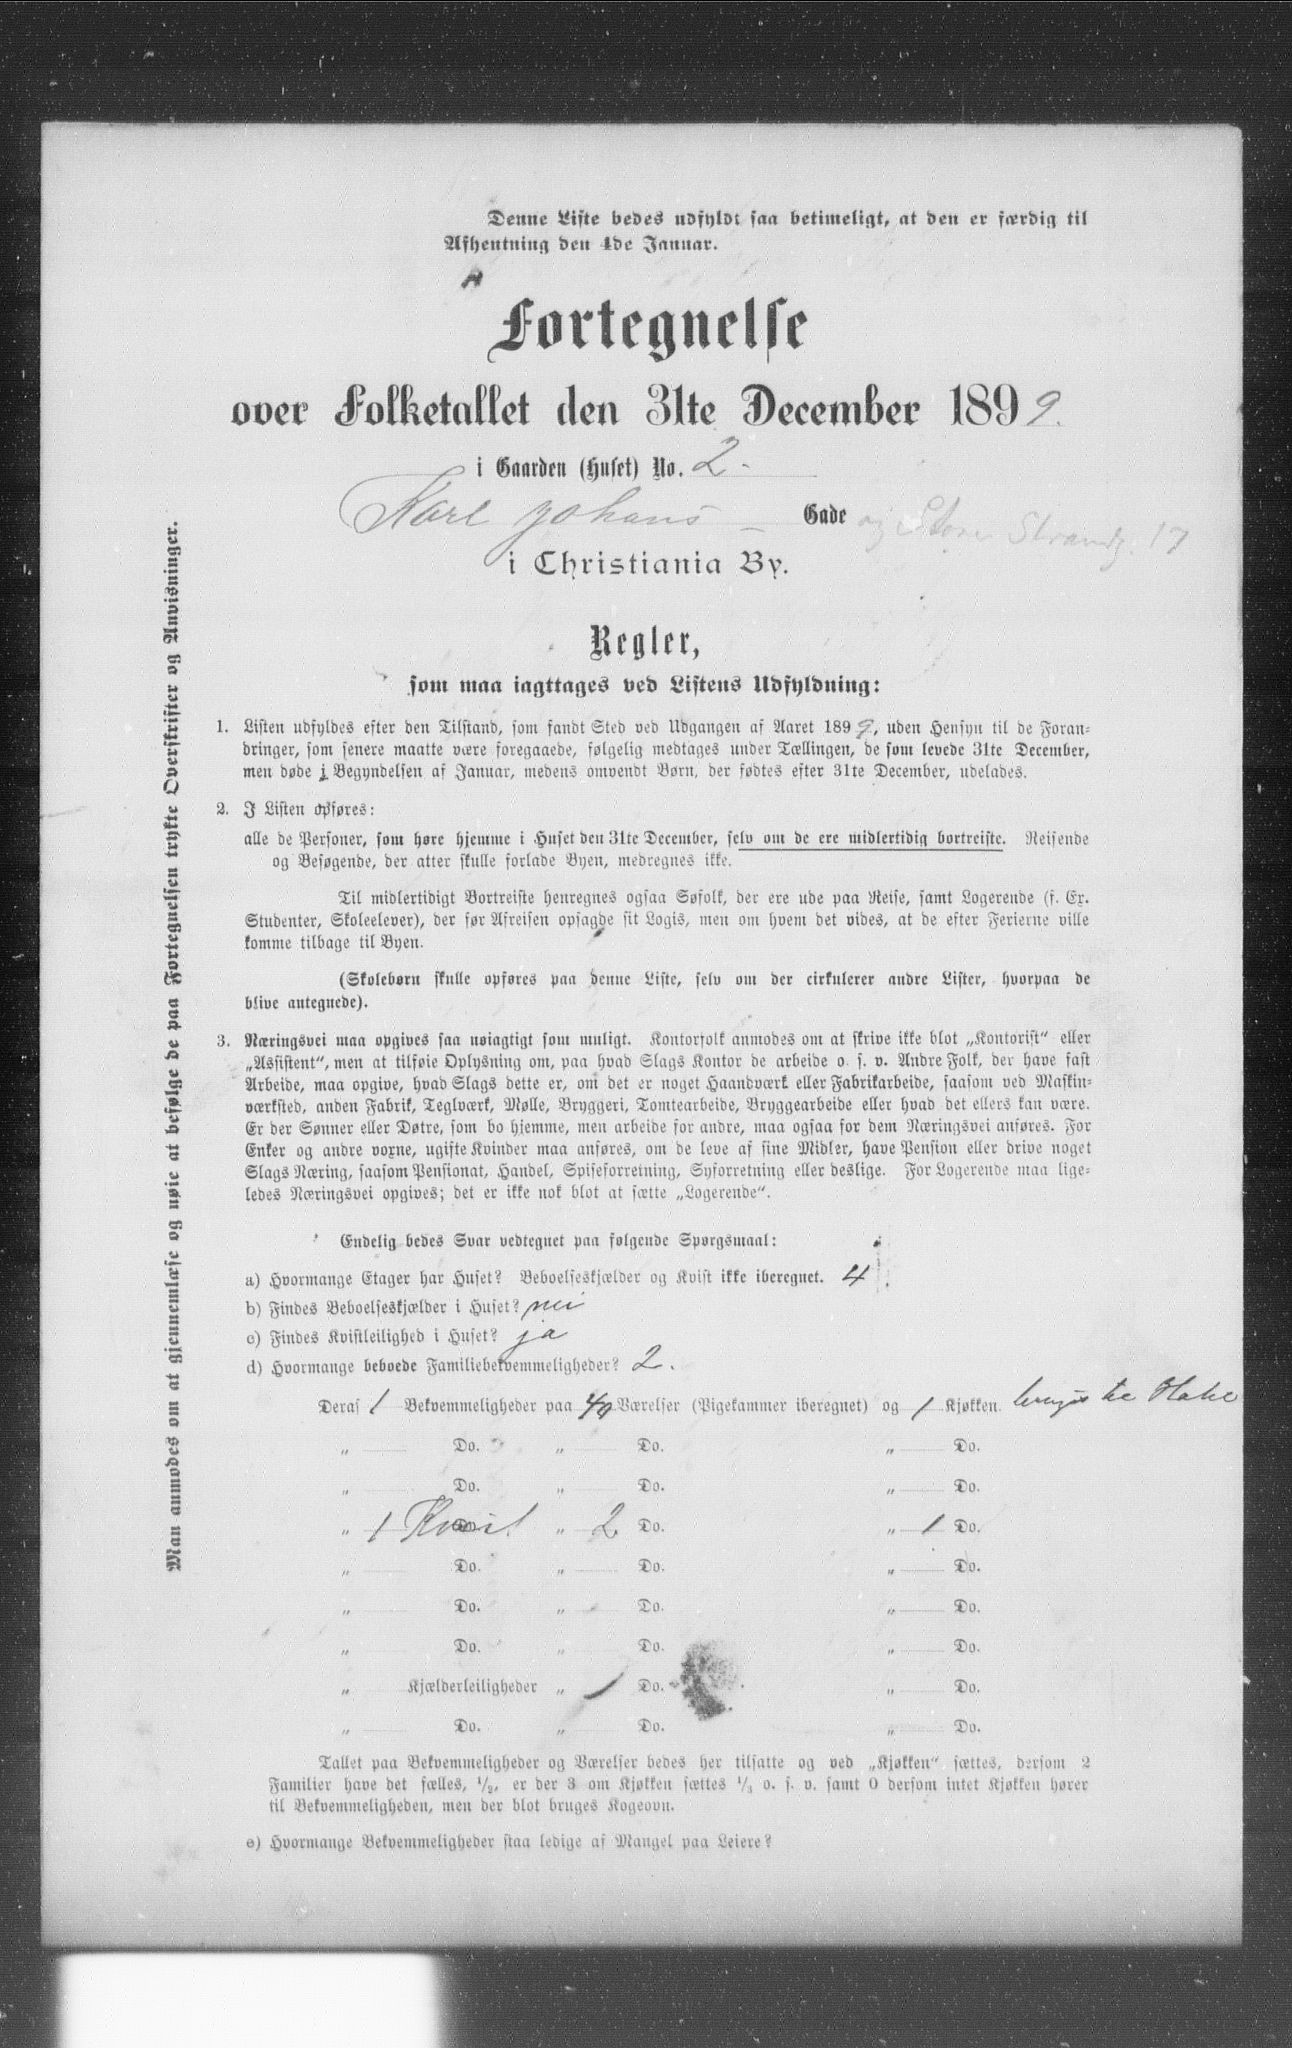 Denne Liste bedes udfyldt saa betimeligt, at den er færdig til
Afhentning den 4de Januar.
Fortegnelse
over Folketallet den 31te December 1899.
i Gaarden (Huset) No. 2.
Karl Johans Gade og Store Strandg. 17
i Christiania By.
Regler,
som maa iagttages ved Listens Udfyldning:
1. Listen udfyldes efter den Tilstand, som fandt Sted ved Udgangen af Aaret 1899, uden Hensyn til de Foran-
dringer, som senere maatte være foregaaede, følgelig medtages under Tællingen, de som levede 31te December,
men døde i Begyndelsen af Januar, medens omvendt Børn, der fødtes efter 31te December, udelades.
2. I Listen opføres:
alle de Personer, som høre hjemme i Huset den 31te December, selv om de ere midlertidig bortreiste. Reisende
og Besøgende, der atter skulle forlade Byen, medregnes ikke.
Til midlertidigt Bortreiste henregnes ogsaa Søfolk, der ere ude paa Reise, samt Logerende (f. Ex.
Studenter, Skoleelever), der før Afreisen opsagde sit Logis, men om hvem det vides, at de efter Ferierne ville
komme tilbage til Byen.
(Skolebørn skulle opføres paa denne Liste, selv om der cirkulerer andre Lister, hvorpaa de
blive antegnede).
3. Næringsvei maa opgives saa nøiagtigt som muligt. Kontorfolk anmodes om at skrive ikke blot „Kontorist" eller
„Assistent", men at tilføie Oplysning om, paa hvad Slags Kontor de arbeide o. s. v. Andre Folk, der have fast
Arbeide, maa opgive, hvad Slags dette er, om det er noget Haandværk eller Fabrikarbeide, saasom ved Maskin-
værksted, anden Fabrik, Teglværk, Mølle, Bryggeri, Tomtearbeide, Bryggearbeide eller hvad det ellers kan være.
Er der Sønner eller Døtre, som bo hjemme, men arbeide for andre, maa ogsaa for dem Næringsvei anføres. For
Enker og andre voxne, ugifte Kvinder maa anføres, om de leve af sine Midler, have Pension eller drive noget
Slags Næring, saasom Pensionat, Handel, Spiseforretning, Syforretning eller deslige. For Logerende maa lige-
ledes Næringsvei opgives; det er ikke nok blot at sætte „Logerende".
Endelig bedes Svar vedtegnet paa følgende Spørgsmaal:
a) Hvormange Etager har Huset? Beboelseskjælder og Kvist ikke iberegnet. 4
b) Findes Beboelseskjælder i Huset? nei
c) Findes Kvistleilighed i Huset? ja
d) Hvormange beboede Familiebekvemmeligheder? 2.
Deraf 1 Bekvemmeligheder paa 40 Værelser (Pigekammer iberegnet) og 1 Kjøkken
„ Do. „ Do. „ Do.
„ Do. „ Do. „ Do.
„ 1 Kvist „ 2 Do. „ 1 Do.
„ Do. „ Do. „ Do.
„ Do. „ Do. „ Do.
„ Do. „ Do. „ Do.
„ Kjælderleiligheder „ Do. „ Do.
„ Do. „ Do. „ Do.
Tallet paa Bekvemmeligheder og Værelser bedes her tilsatte og ved „Kjøkken" sættes, dersom 2
Familier have det fælles, 1/2, er der 3 om Kjøkken sættes 1/3 o. s. v. samt 0 dersom intet Kjøkken hører
til Bekvemmeligheden, men der blot bruges Kogeovn.
e) Hvormange Bekvemmeligheder staa ledige af Mangel paa Leiere?
Man anmodes om at gjennemlæse og nøie at befølge de paa Fortegnelsen trykte Overskrifter og Anvisninger.